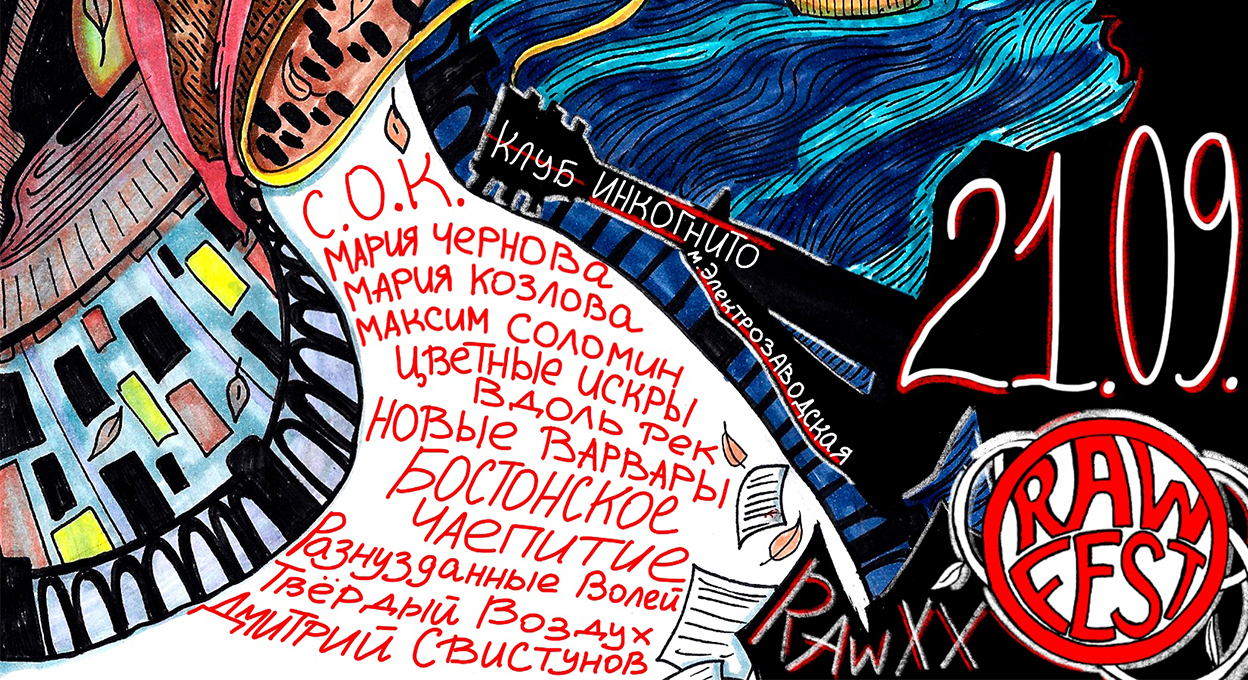 С.О.К.
МАРИЯ ЧЕРНОВА
МАРИЯ КОЗЛОВА
МАКСИМ СОЛОМИН
ЦВЕТНЫЕ ИСКРЫ
ВДОЛЬ РЕК
НОВЫЕ ВАРВАРЫ
БОСТОНСКОЕ
ЧАЕПИТИЕ
Разнузданные Волей
Твёрдый Воздух
ДМИТРИЙ СВИСТУНОВ
КЛУБ ИНКОГНИТО
м. Электрозаводская
21.09.
RAW FEST
RAW XX